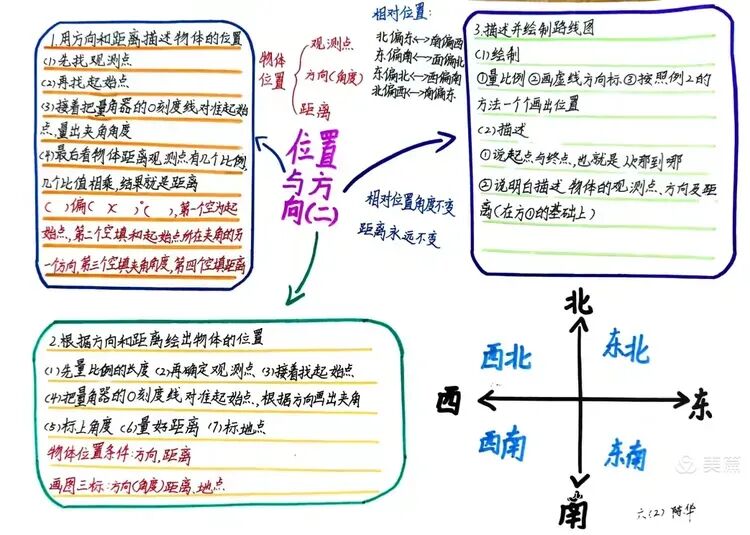 1.用方向和距离描述物体的位置
(1)先找观测点
(2)再找起始点
(3)接着把量角器的0刻度线对准起始
点,量出夹角角度
(4)最后看物体距离观测点有几个比例,
几个比值相乘,结果就是距离
( )偏( × )°( ),第一个空为起
始点,第二个空填和起始点所在夹角的另
一个方向,第三个空填夹角角度,第四个空填距离
物体
位置
观测点
方向(角度)
距离
相对位置:
北偏东<->南偏西
东偏南<->西偏北
东偏北<->西偏南
北偏西<->南偏东
位置
与方
向(二)
相对位置角度不变
距离永远不变
3.描述并绘制路线图
(1)绘制
①量比例②画虚线方向标③按照例2的
方法一个个画出位置
(2)描述
①说起点与终点,也就是从那到哪
②说明白描述物体的观测点、方向及距
离(在方①的基础上)
2.根据方向和距离绘出物体的位置
(1)先量比例的长度 (2)再确定观测点 (3)接着找起始点
(4)把量角器的0刻度线对准起始点、根据方向画出夹角
(5)标上角度 (6)量好距离 (7)标地点
物体位置条件:方向,距离
画图三标:方向(角度)距离、地点
北
西北 东北
西 东
西南 东南
南
美篇
六(2) 陈华